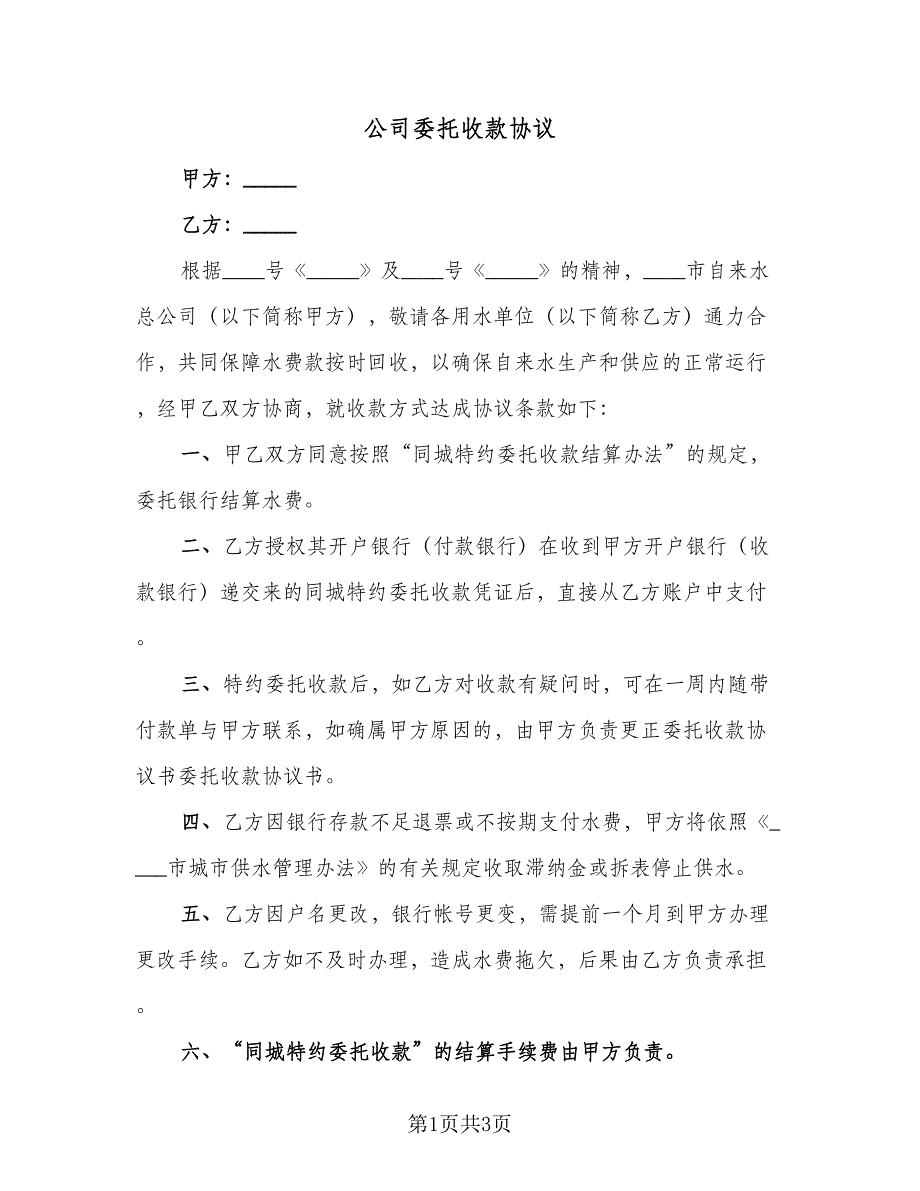 公司委托收款协议
甲方：_____
乙方：_____
根据____号《_____》及____号《_____》的精神，____市自来水
总公司（以下简称甲方），敬请各用水单位（以下简称乙方）通力合
作，共同保障水费款按时回收，以确保自来水生产和供应的正常运行
，经甲乙双方协商，就收款方式达成协议条款如下：
一、甲乙双方同意按照“同城特约委托收款结算办法”的规定，
委托银行结算水费。
二、乙方授权其开户银行（付款银行）在收到甲方开户银行（收
款银行）递交来的同城特约委托收款凭证后，直接从乙方账户中支付
。
三、特约委托收款后，如乙方对收款有疑问时，可在一周内随带
付款单与甲方联系，如确属甲方原因的，由甲方负责更正委托收款协
议书委托收款协议书。
四、乙方因银行存款不足退票或不按期支付水费，甲方将依照《_
___市城市供水管理办法》的有关规定收取滞纳金或拆表停止供水。
五、乙方因户名更改，银行帐号更变，需提前一个月到甲方办理
更改手续。乙方如不及时办理，造成水费拖欠，后果由乙方负责承担
。
六、“同城特约委托收款”的结算手续费由甲方负责。
第1页共3页